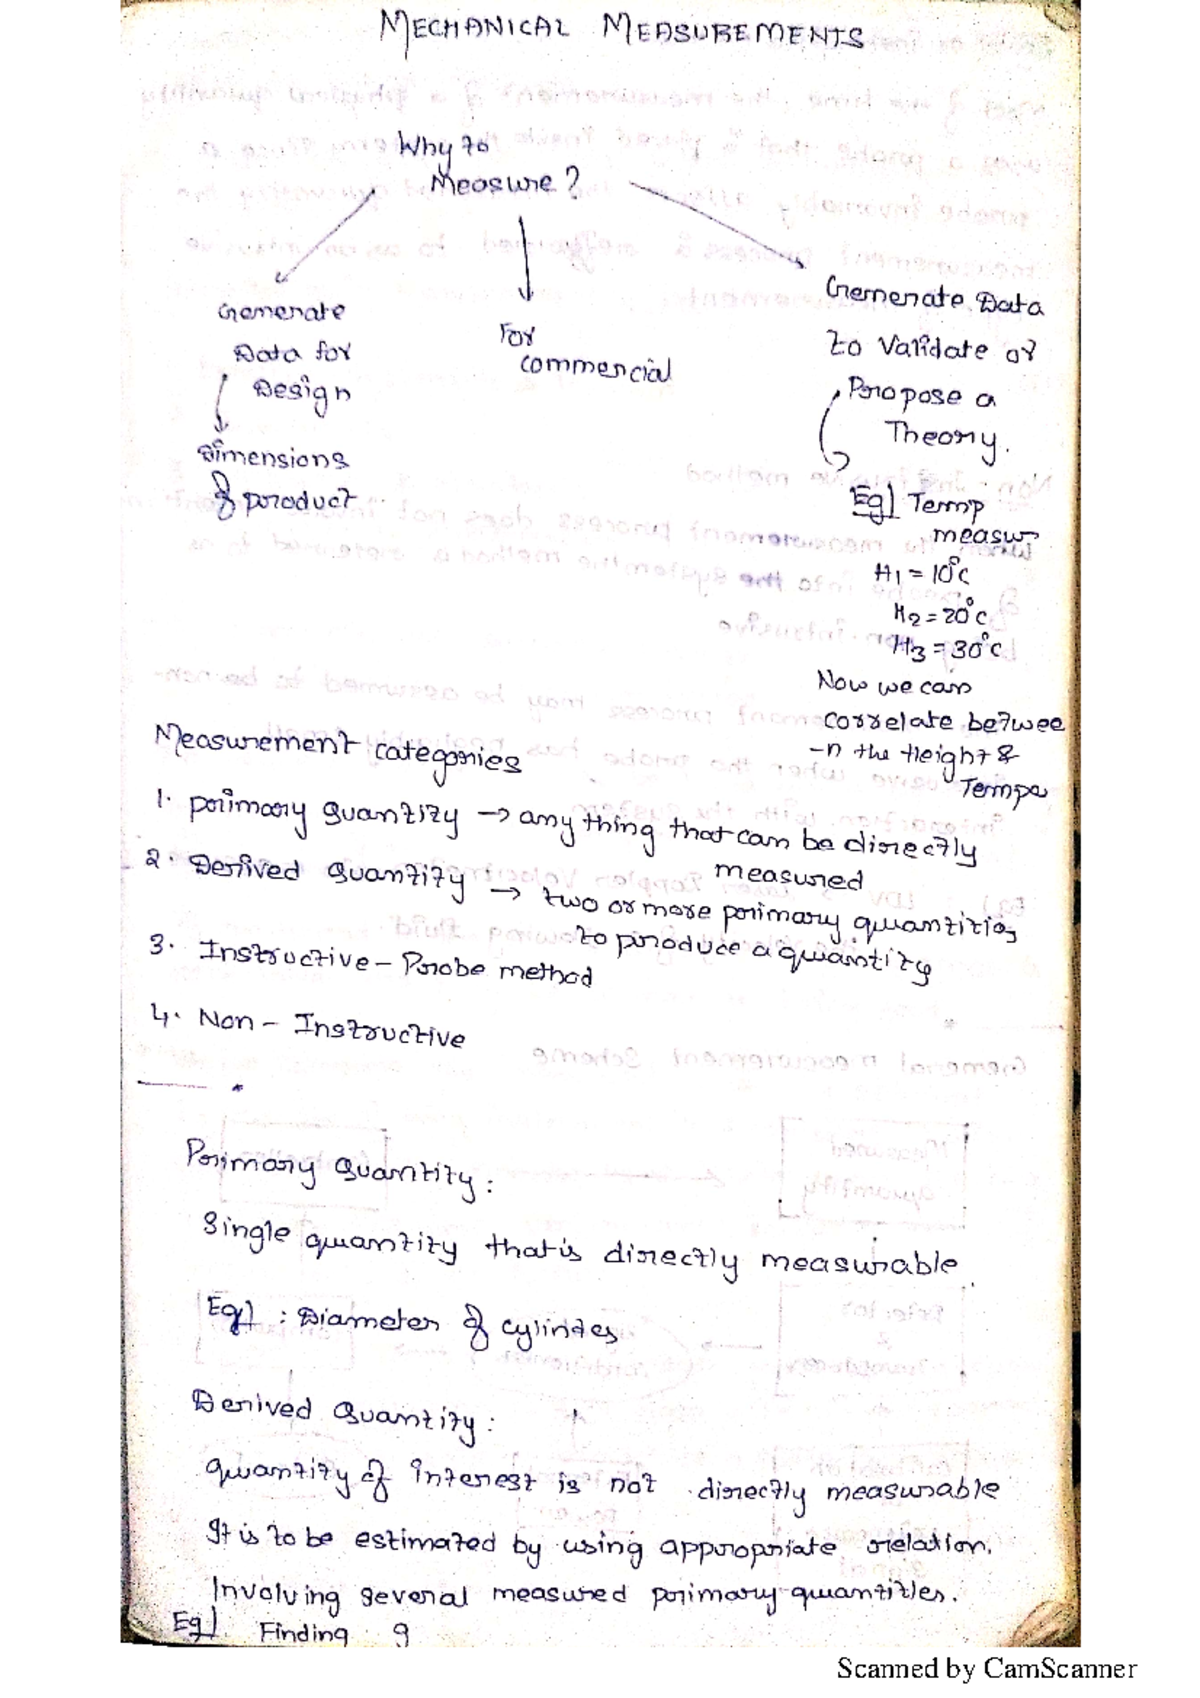 MECHANICAL MEASUREMENTS
Why to
Measure?
Generate
Data for
Design
Dimensions
of product
For
commercial
Generate Data
to Validate or
Propose a
Theory.
Eg) Temp
measur
H1 = 10°c
H2 = 20°c
H3 = 30°c
Now we can
correlate betwee
-n the Height &
Tempe
Measurement categories
1. primary quantity → any thing that can be directly
measured
2. Derived quantity → two or more primary quantities
to produce a quantity
3. Instructive - Probe method
4. Non - Instructive
Primary quantity:
Single quantity that is directly measurable
Eg) : Diameter of cylindes
Derived quantity:
quantity of interest is not directly measurable
It is to be estimated by using appropriate relation.
Involving several measured primary quantities.
Eg) Finding g
Scanned by CamScanner